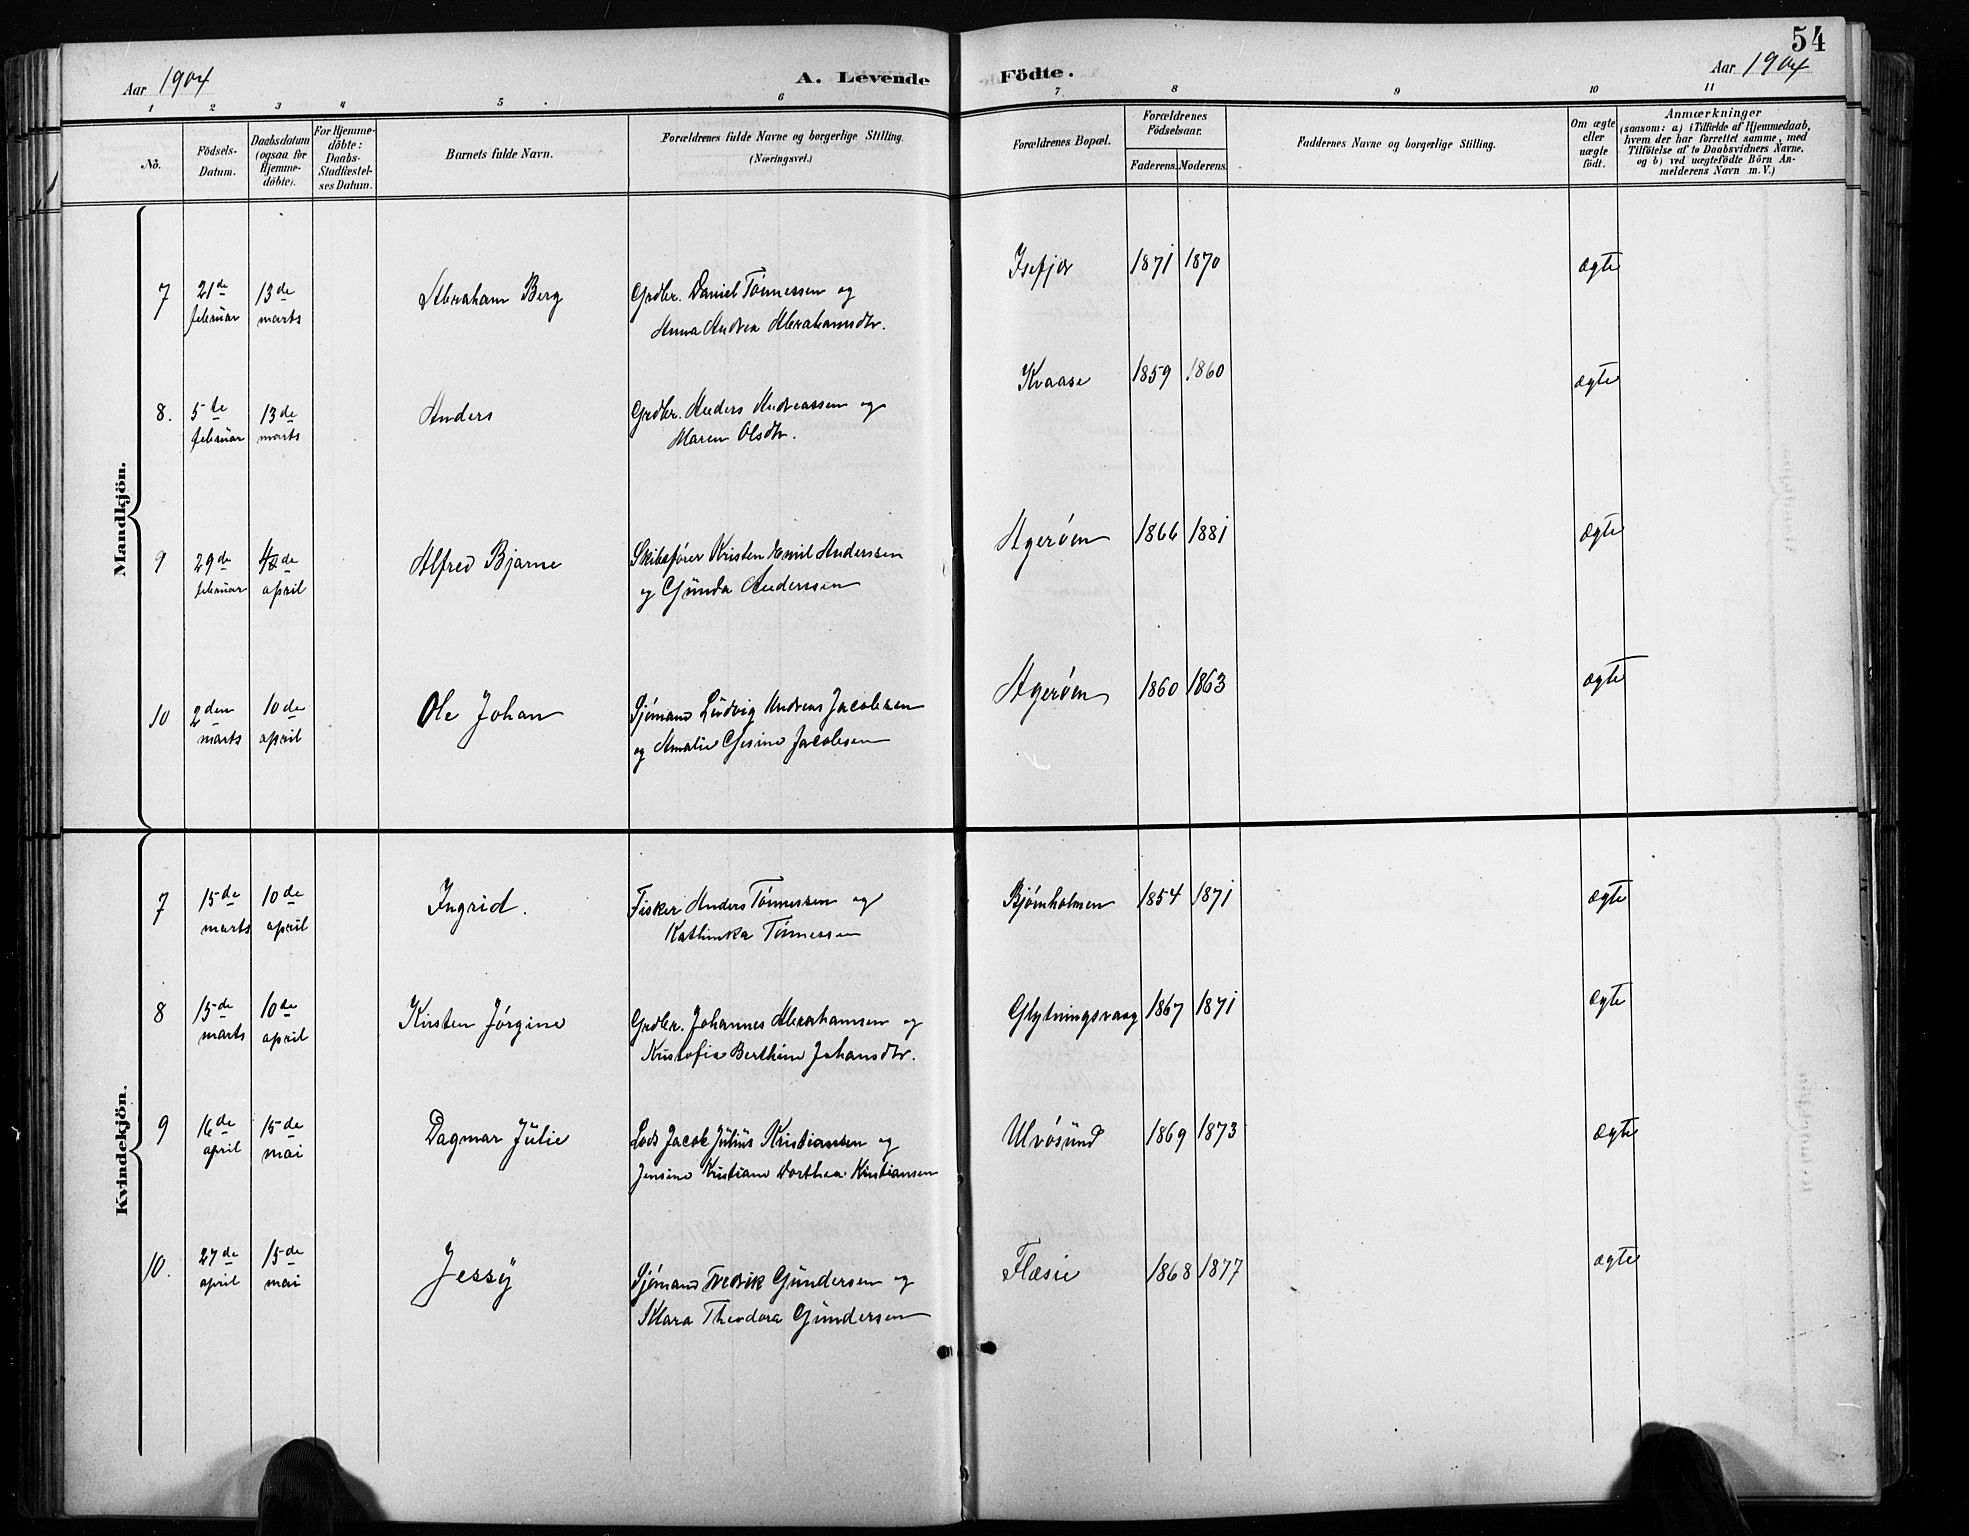 54
Aar 1904
A. Levende
Födte.
Aar 1904
1 2 3 4 5 6 7 8 9 10 11
No.
Födsels-
Datum.
Daabsdatum
(ogsaa for
Hjemme-
döbte).
For Hjemme-
döbte:
Daabs-
Stadfæstel-
ses Datum.
Barnets fulde Navn.
Forældrenes fulde Navne og borgerlige Stilling.
(Næringsvei.)
Forældrenes Bopæl.
Forældrenes
Födselsaar.
Faderens. Moderens.
Faddernes Navne og borgerlige Stilling.
Om ægte
eller
uægte
födt.
Anmærkninger
(saasom: a) i Tilfælde af Hjemmedaab,
hvem der har forrettet samme, med
Tilföielse af to Daabsvidners Navne,
og b) ved uægtefödte Börn An-
melderens Navn m. V.)
Mandkjön.
7 21de februar 13de marts Abraham Berg Grdbr. Daniel Tønnessen og
Anna Andrea Abrahamsdtr.
Isefjær 1871 1870 ægte
8. 5te februar 13de marts Anders Grdbr. Anders Andreassen og
Maren Olsdtr.
Kvaase 1859 1860 ægte
9 29de februar 4de april Alfred Bjarne Skibsfører Kristen Emil Anderssen
og Gúnda Anderssen
Agerøen 1866 1881 ægte
10 2den marts 10de april Ole Johan Sjømand Lúdvig Andreas Jacobssen
og Amalie Gesine Jacobsen
Agerøen 1860 1863 ægte
Kvindekjön.
7 15de marts 10de april Ingrid. Fisker Anders Tønnessen og
Kathinka Tønnessen
Bjørnholmen 1854 1871 ægte
8 15de marts 10de april Kirsten Jørgine Grdbr. Johannes Abrahamsen og
Kristofia Berthine Johansdtr.
Glytningsvaag 1867 1871 ægte
9 16de april 15de mai Dagmar Júlie Lods Jacob Júliús Kristiansen og
Jensine Kristiane Dorthea Kristiansen
Ulvøsúnd 1869 1873 ægte
10. 27de april 15de mai Jessÿ Sjømand Fredrik Gúndersen og
Klara Theodora Gúndersen
Flæsie 1868 1877 ægte